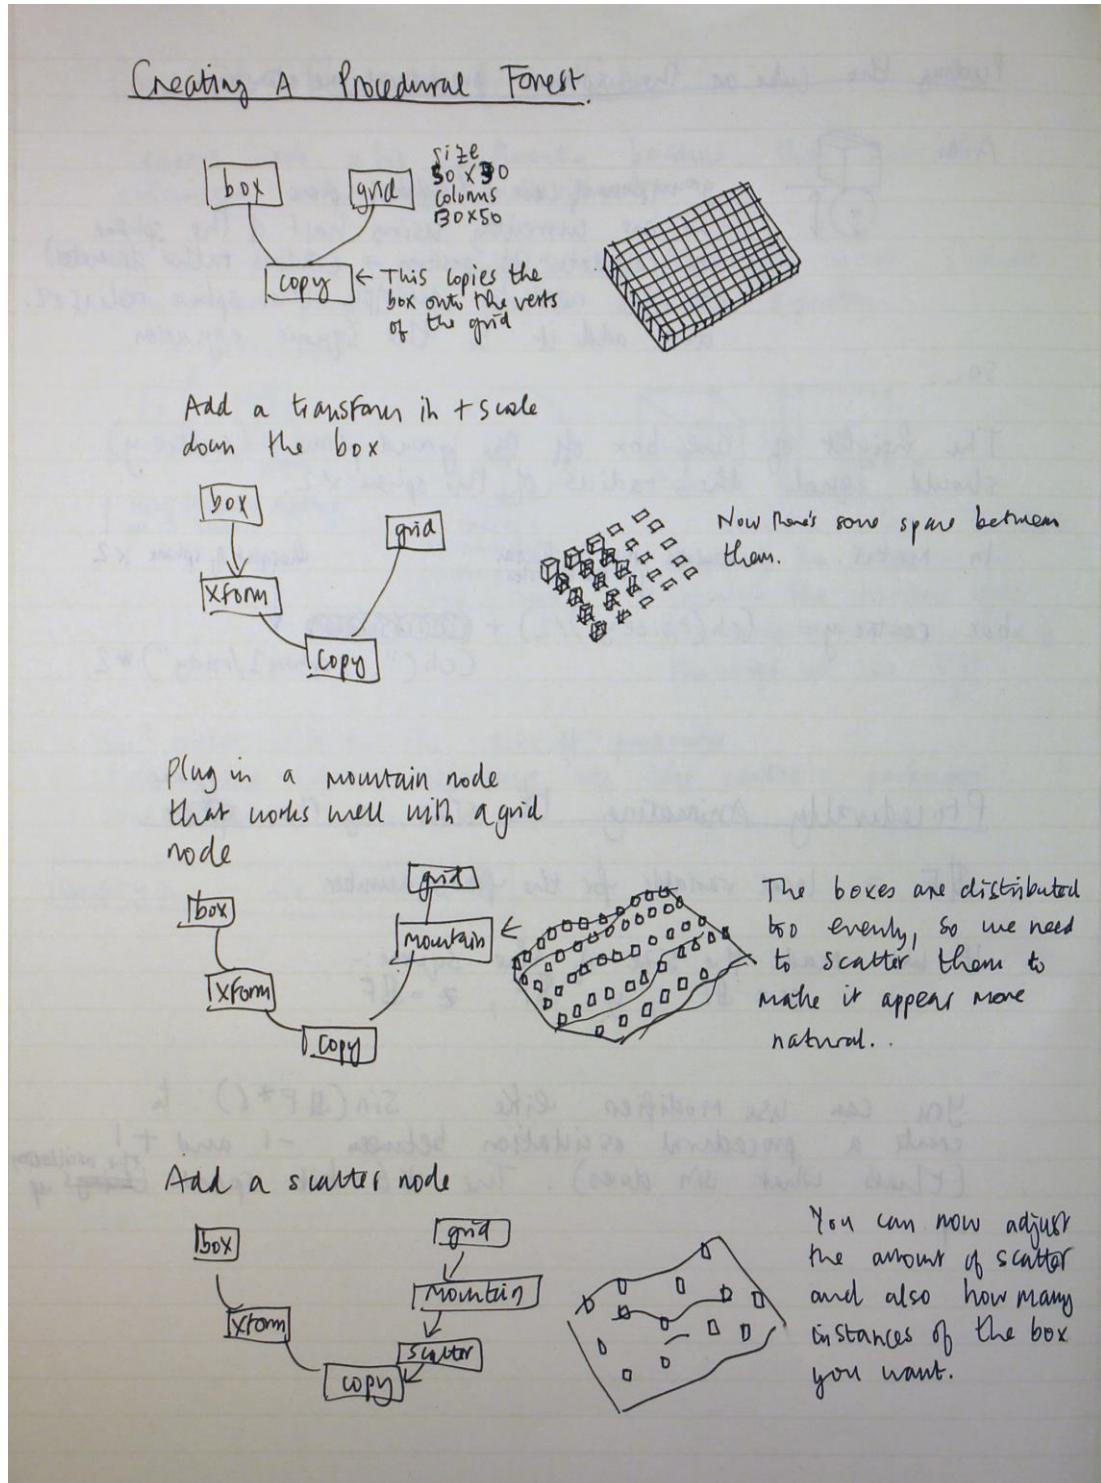 Creating A Procedural Forest.
box
grid
size
50 x 50
colomns
50x50
copy
← This copies the
box onto the verts
of the grid
Add a transform in + scale
down the box
box
grid
xform
copy
Now there's some space between
them.
Plug in a mountain node
that works well with a grid
node
grid
box
mountain
xform
copy
The boxes are distributed
too evenly, so we need
to scatter them to
make it appear more
natural..
Add a scatter node
box
grid
mountain
xform
scatter
copy
You can now adjust
the amount of scatter
and also how many
instances of the box
you want.